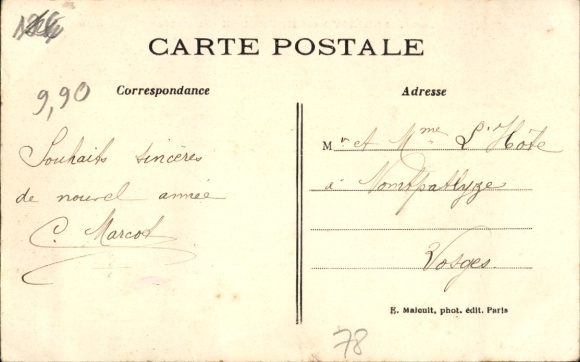 CARTE POSTALE
Correspondance
Adresse
9,90
Souhaits sincères
de nouvel année
C. Marcot
Mr et Mme L'Hôte
à Nompatelize
Vosges
E. Malcuit, phot. édit. Paris
78